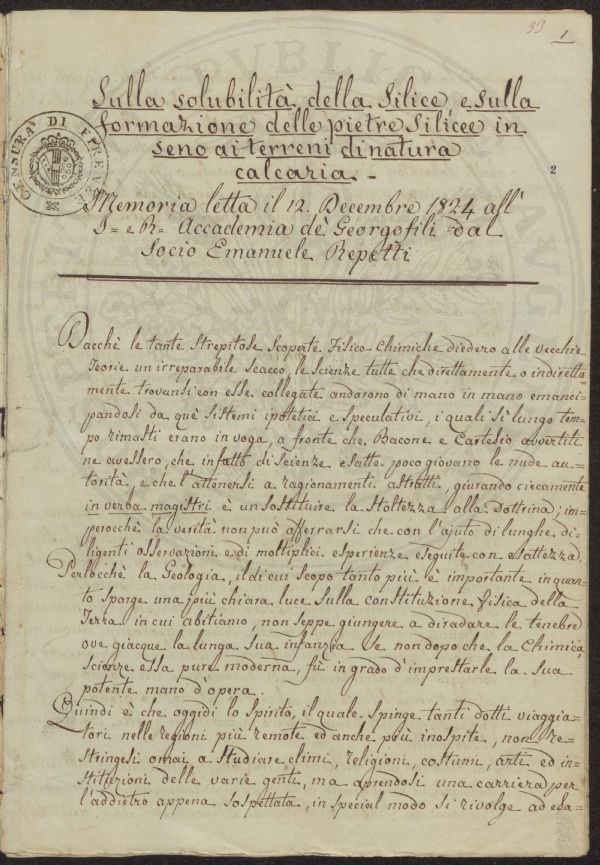 33 1
Sulla solubilità della Silice e sulla
formazione delle pietre Silicee in
seno ai terreni di natura
calcaria. -
2
CENSURA DI FIRENZE
Memoria letta il 12. Decembre 1824 all'
I= e R= Accademia de' Georgofili dal
Socio Emanuele Repetti
Dacchè le tante strepitose scoperte Fisico-Chimiche diedero alle vecchie
Teorie un irreparabile scacco, le scienze tutte che direttamente o indiretta
mente trovansi con esse collegate andarono di mano in mano emanci-
pandosi da que' sistemi ipotetici e speculativi, i quali sì lungo tem-
po rimasti erano in voga, a fronte che Bacone e Cartesio avvertiti
ne avessero, che in fatto di scienze esatte poco giovano le nude au-
torità, e che l'attenersi a ragionamenti astratti, giurando ciecamente
in verba magistri è un sostituire la stoltezza alla dottrina; im-
perocchè la verità non può afferrarsi che con l'ajuto di lunghe di-
ligenti osservazioni e di moltiplici esperienze eseguite con esattezza.
Perlocchè la Geologia, il di cui scopo tanto più è importante in quan-
to sparge una più chiara luce sulla constituzione fisica della
Terra in cui abitiamo, non seppe giungere a diradare le tenebre
ove giacque la lunga sua infanzia se non dopo che la Chimica,
scienza essa pure moderna, fù in grado d'imprestarle la sua
potente mano d'opera.
Quindi è che oggidì lo spirito, il quale spinge tanti dotti viaggia-
tori nelle regioni più remote ed anche più inospite, non re-
stringesi omai a studiare climi, religioni, costumi, arti ed in-
stituzioni delle varie genti, ma aprendosi una carriera per
l'addietro appena sospettata, in special modo si rivolge ad esa-